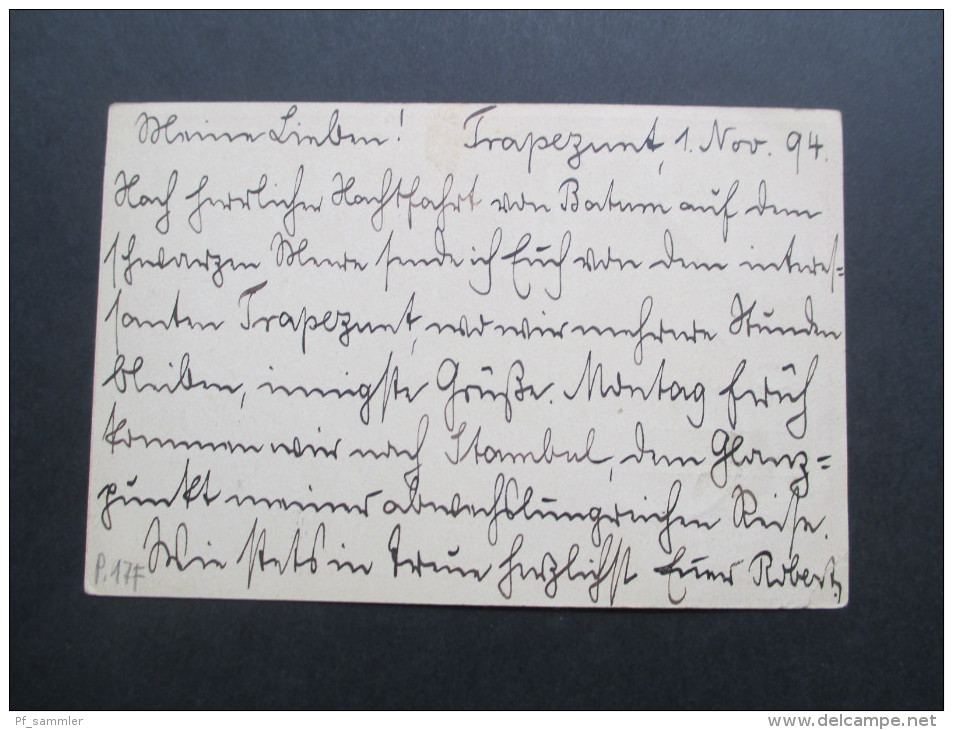 Meine Lieben! Trapezunt, 1. Nov. 94.
Nach herrlicher Nachtfahrt von Batum auf dem
schwarzen Meere sende ich Euch von dem interes=
santen Trapezunt, wo wir mehrere Stunden
bleiben, innigste Grüße. Montag früh
kommen wir nach Stambul, dem Glanz=
punkt meiner abwechslungreichen Reise.
Wie stets in Treue herzlichst Euer Robert.
P.17F
Pf_sammler
www.delcampe.net